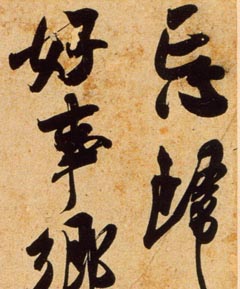 忘歸
好事鄉